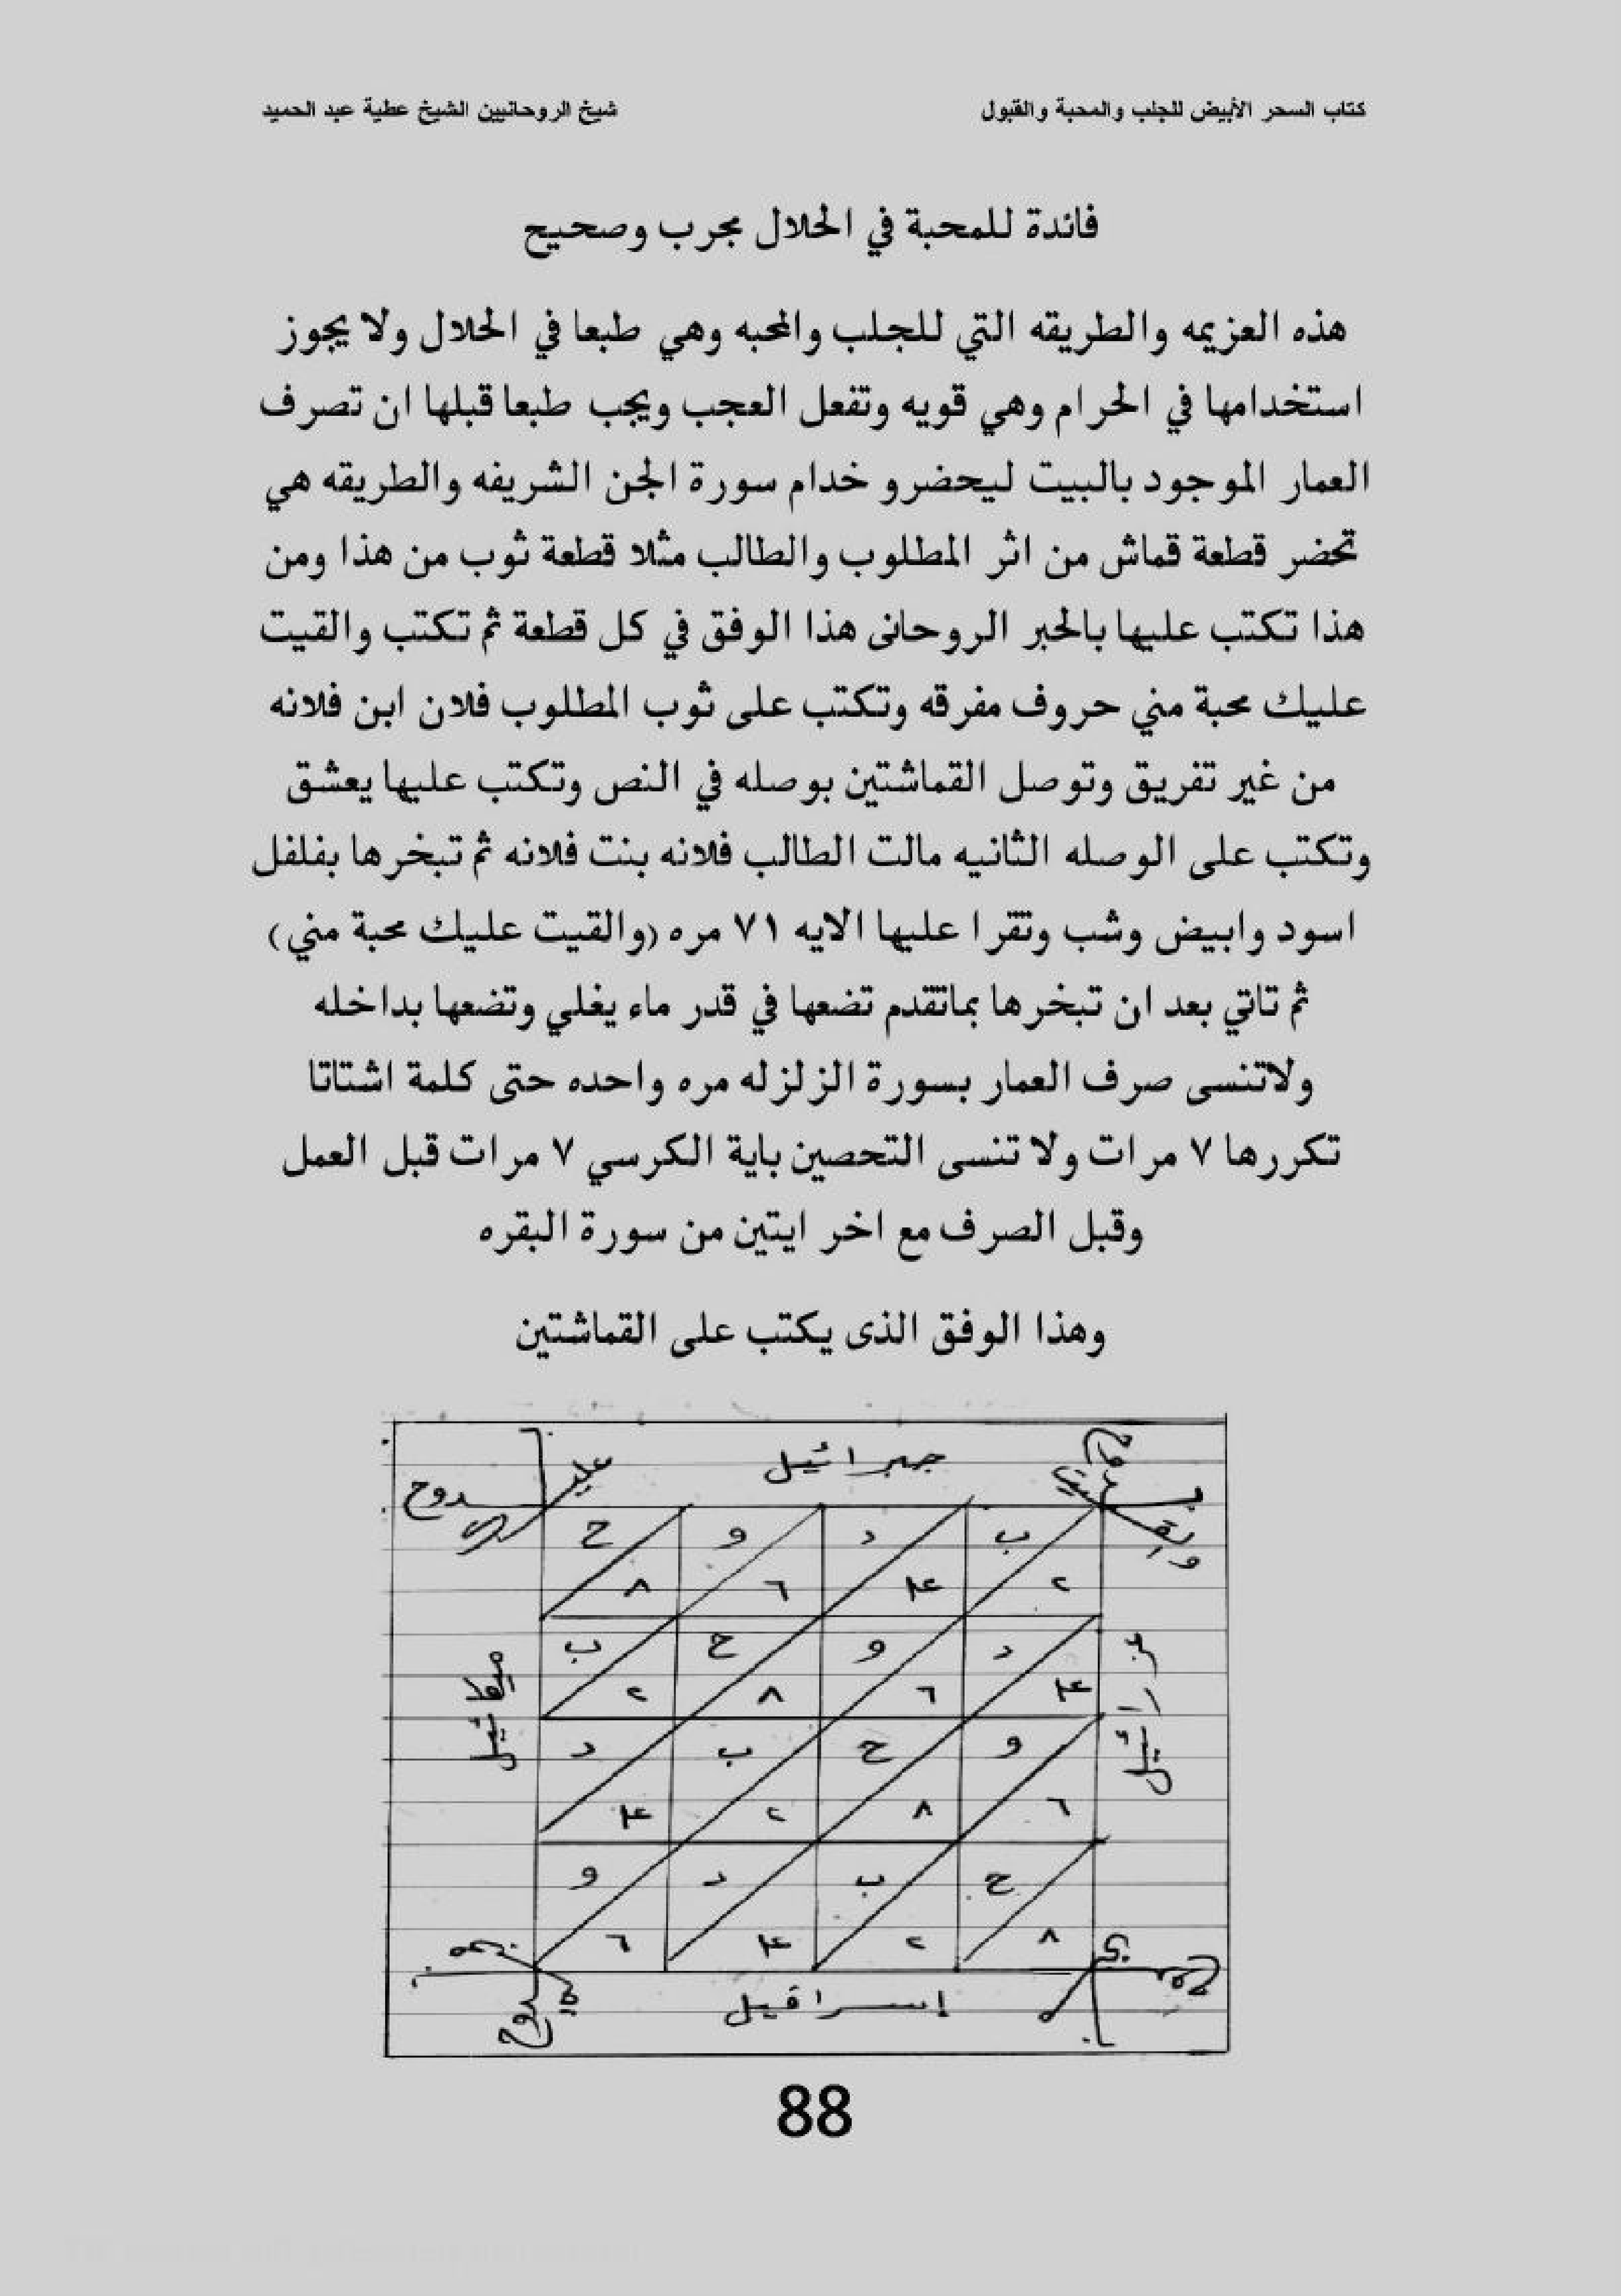 كتاب السحر الأبيض للجلب والمحبة والقبول
شيخ الروحانيين الشيخ عطية عبد الحميد
فائدة للمحبة في الحلال مجرب وصحيح
هذه العزيمه والطريقه التي للجلب والمحبه وهي طبعا في الحلال ولا يجوز
استخدامها في الحرام وهي قويه وتفعل العجب ويجب طبعا قبلها ان تصرف
العمار الموجود بالبيت ليحضرو خدام سورة الجن الشريفه والطريقه هي
تحضر قطعة قماش من اثر المطلوب والطالب مثلا قطعة ثوب من هذا ومن
هذا تكتب عليها بالحبر الروحانى هذا الوفق في كل قطعة ثم تكتب والقيت
عليك محبة مني حروف مفرقه وتكتب على ثوب المطلوب فلان ابن فلانه
من غير تفريق وتوصل القماشتين بوصله في النص وتكتب عليها يعشق
وتكتب على الوصله الثانيه مالت الطالب فلانه بنت فلانه ثم تبخرها بفلفل
اسود وابيض وشب وتقرا عليها الايه ٧١ مره (والقيت عليك محبة مني)
ثم تاتي بعد ان تبخرها بماتقدم تضعها في قدر ماء يغلي وتضعها بداخله
ولاتنسى صرف العمار بسورة الزلزله مره واحده حتى كلمة اشتاتا
تكررها ٧ مرات ولا تنسى التحصين باية الكرسي ٧ مرات قبل العمل
وقبل الصرف مع اخر ايتين من سورة البقره
وهذا الوفق الذى يكتب على القماشتين
جبرائيل
ب د و ح
٢ ٤ ٦ ٨
د و ح ب
٤ ٦ ٨ ٢
و ح ب د
٦ ٨ ٢ ٤
ح ب د و
٨ ٢ ٤ ٦
عزرائيل
ميكائيل
إسرافيل
88